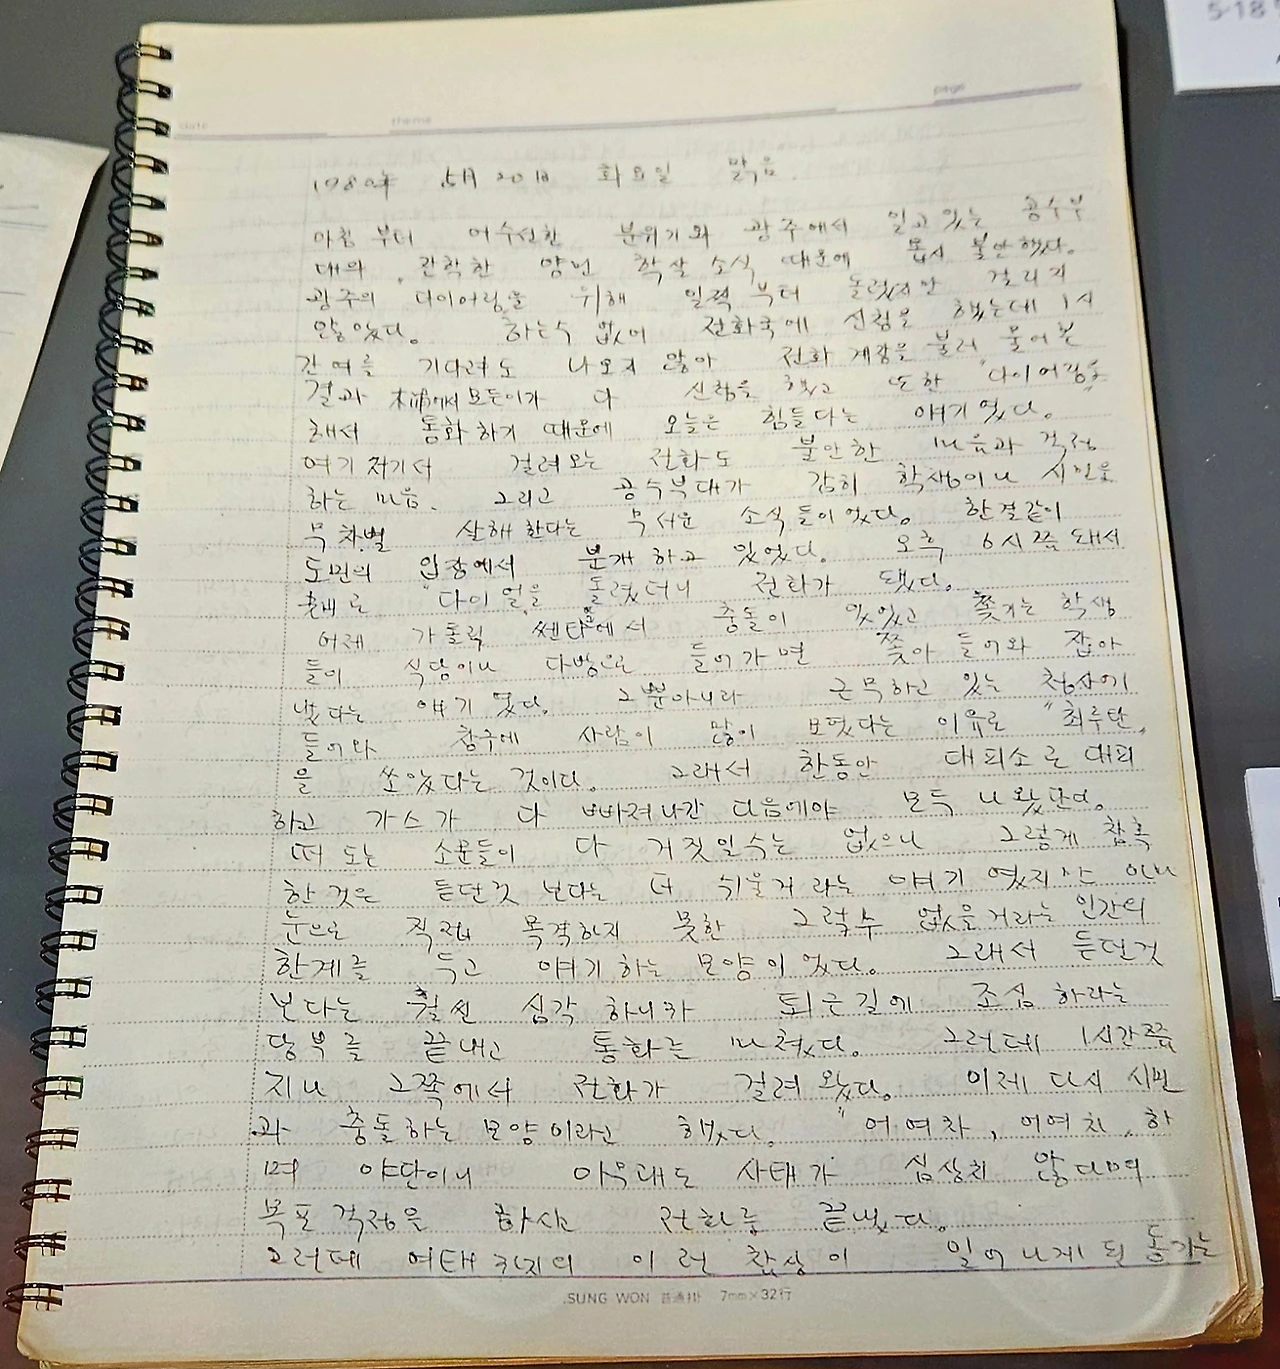 5·18
date theme page
1980年 5月 20日 화요일 맑음.
아침부터 어수선한 분위기와 광주에서 일고 있는 공수부
대의 잔학한 양민 학살 소식 때문에 몹시 불안했다.
광주의 다이어링을 위해 일찍부터 돌렸지만 걸리지
않았다. 하는수 없이 전화국에 신청을 했는데 1시
간여를 기다려도 나오지 않아 전화 계장을 불러 물어본
결과 木浦에서 모든이가 다 신청을 했고 또한 "다이어링"을
해서 통화하기 때문에 오늘은 힘들다는 얘기였다.
여기저기서 걸려오는 전화도 불안한 마음과 걱정
하는 마음. 그리고 공수부대가 감히 학생이나 시민을
무차별 살해한다는 무서운 소식들이었다. 한결같이
도민의 입장에서 분개하고 있었다. 오후 6시쯤 돼서
"다이얼을 돌렸더니 전화가 됐다.
어제 가톨릭 쎈타에서 충돌이 있었고 쫓기는 학생
들이 식당이나 다방으로 들어가면 쫓아 들어와 잡아
냈다는 얘기였다. 그뿐아니라 근무하고 있는 청사에
들어와 창구에 사람이 많이 보였다는 이유로 "최루탄"
을 쏘았다는 것이다. 그래서 한동안 대피소로 대피
하고 가스가 다 빠져나간 다음에야 모두 나왔단다.
떠도는 소문들이 다 거짓일수는 없으나 그렇게 참혹
한 것은 듣던것 보다는 더 쉬울거라는 얘기였지만
눈으로 직접 목격하지 못한 그럴수 없을거라는 인간의
한계를 두고 얘기하는 모양이었다. 그래서 듣던것
보다는 훨씬 심각하니까 퇴근길에 조심하라는
당부를 끝내고 통화를 마쳤다. 그런데 1시간쯤
지나 그쪽에서 전화가 걸려왔다. 이제 다시 시민
과 충돌하는 모양이라고 했다. "어여차, 어여차" 하
며 야단이니 아무래도 사태가 심상치 않다며
목포 걱정을 하시고 전화를 끝냈다.
그런데 여태까지의 이런 참상이 일어나게 된 동기는
SUNG WON 普通科 7mm×32行